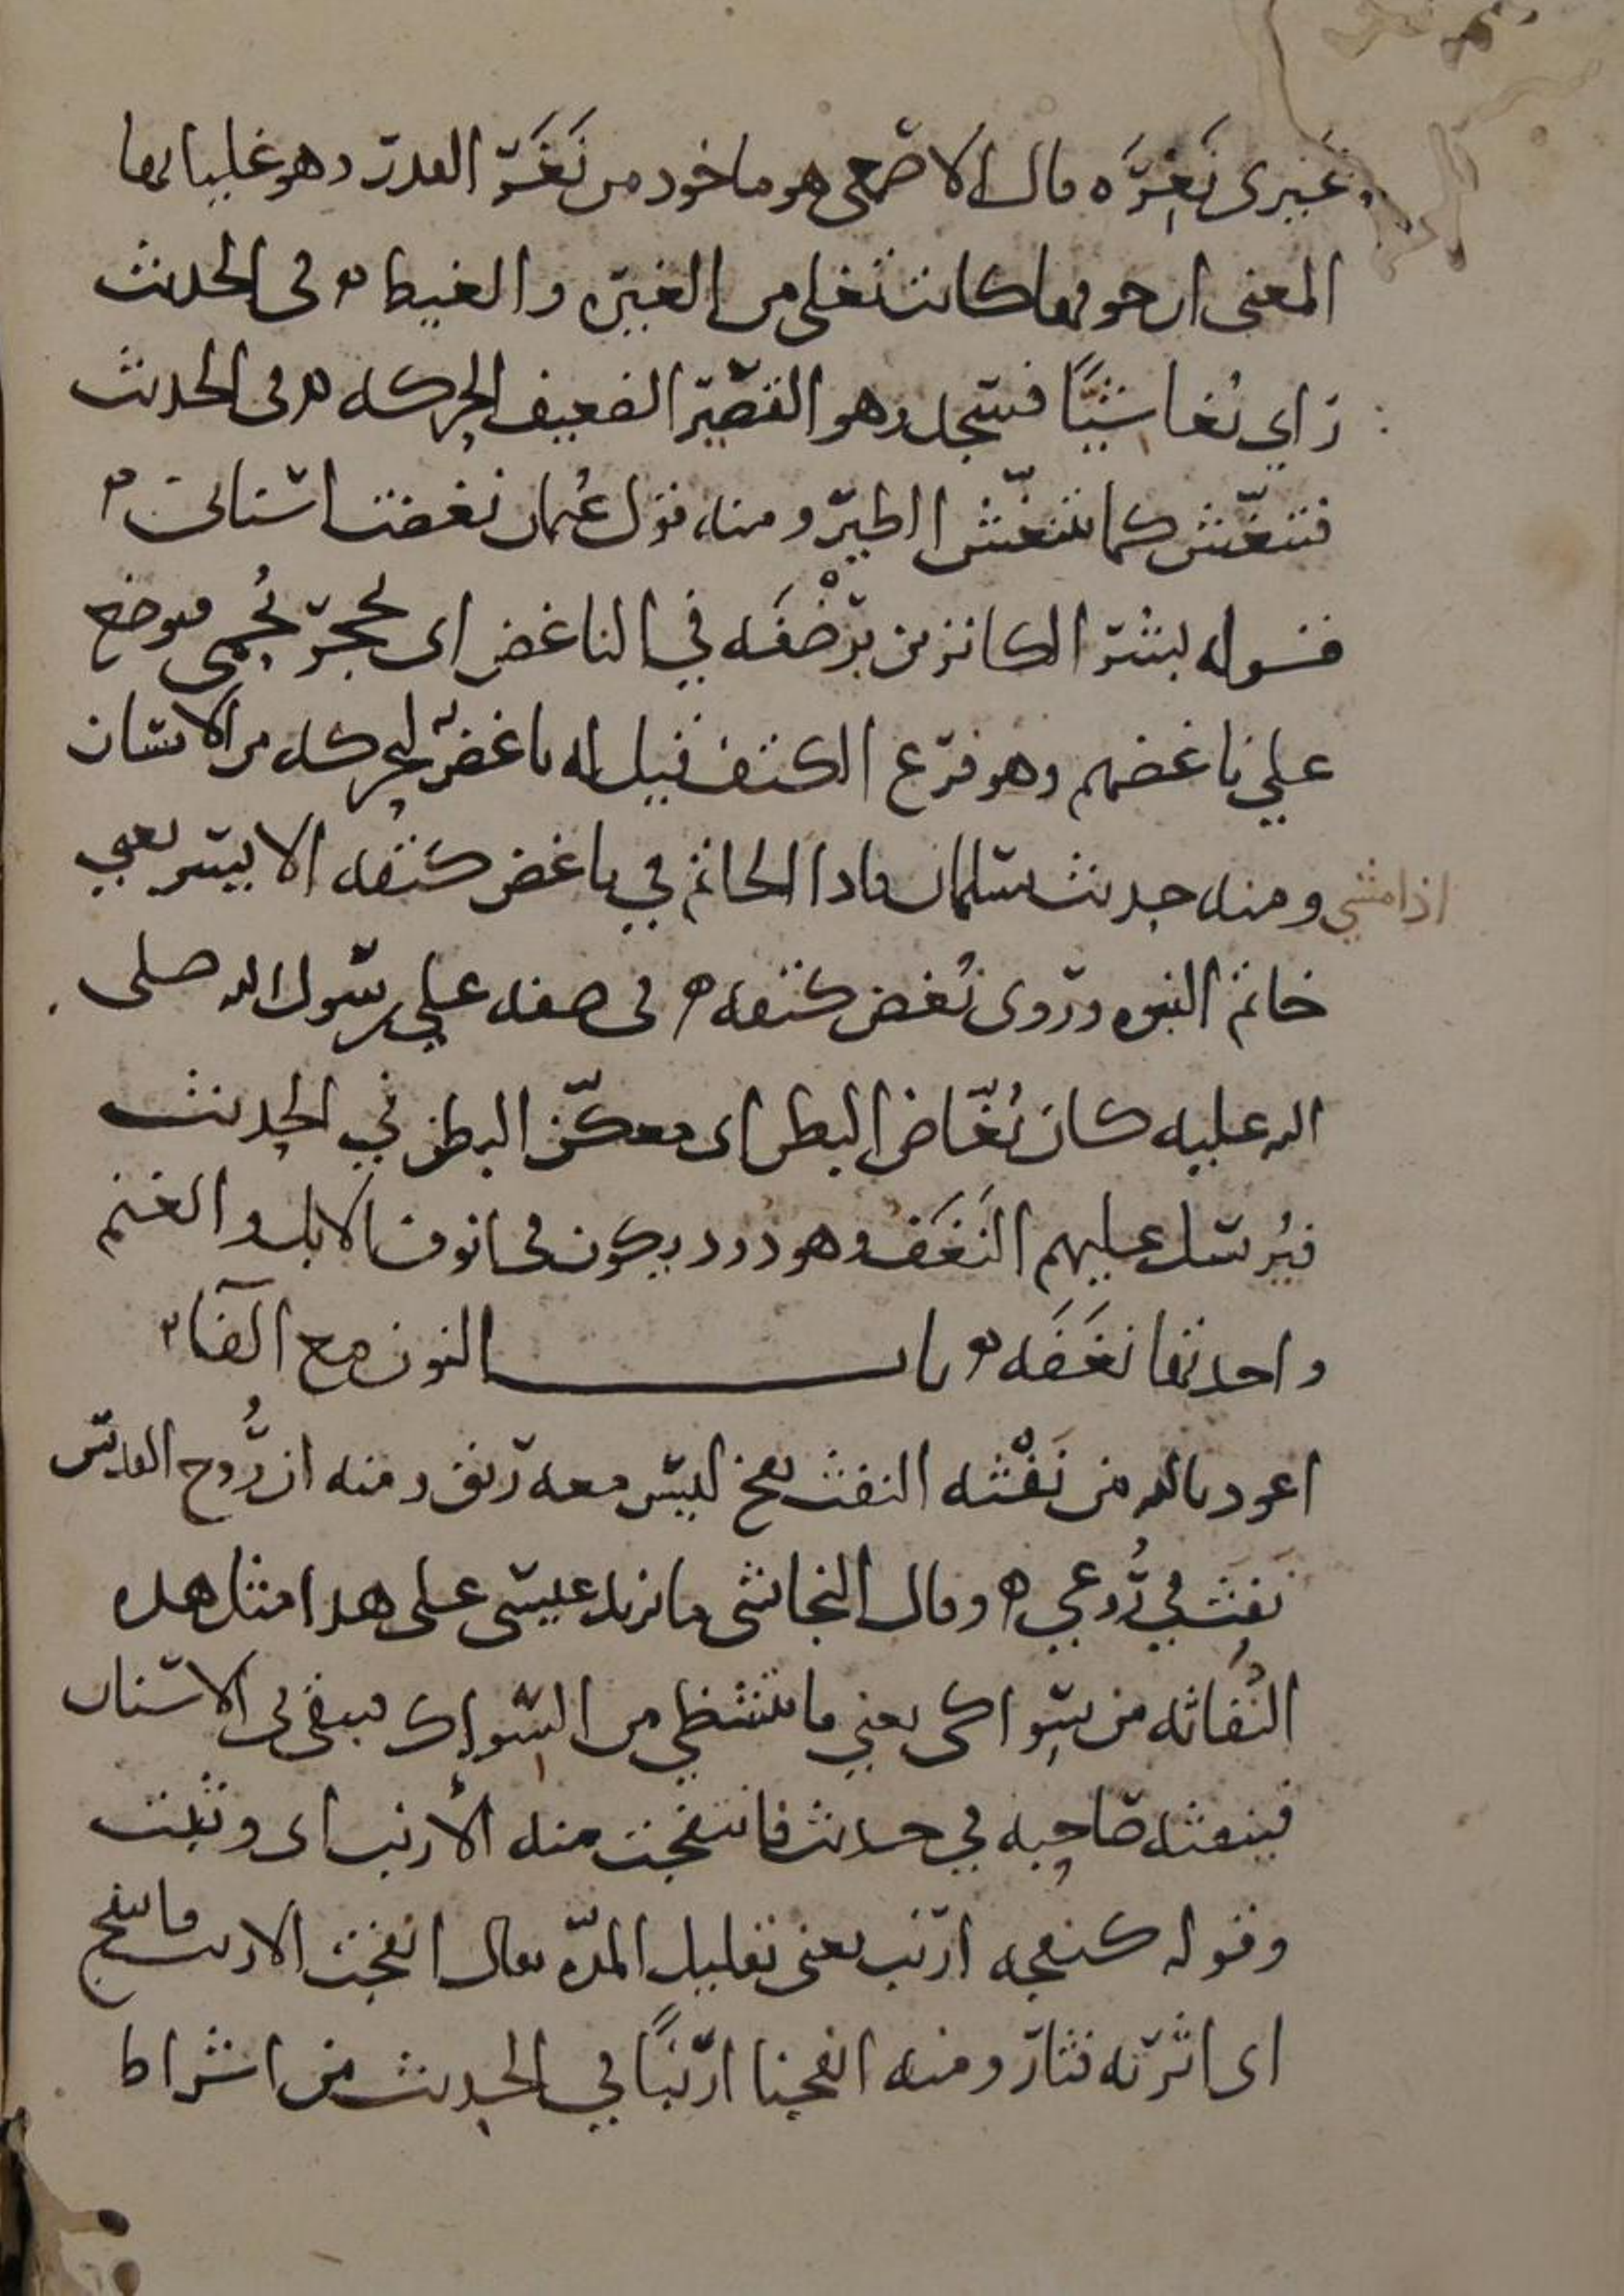 غَيرى نَغِرَه قال الاصمعى هو ماخوذ من نَغَر القدر وهو غليانها
المعنى ان جوفها كانت تغلى من الغيره والغيظ ه فى الحديث
راي نُغاشيًّا فسجد وهو القصير الضعيف الحركه ه وفى الحديث
فتنغّش كما تتنغّش الطير ومنه قول عثمان نغضت اسنانى ه
قوله بشر الكانزين برَضْفَه في الناغض اى بحجر يُحمى فيوضع
علي ناغضهم وهو فرع الكتف قيل له ناغض لتحركه من الانسان
اذا مشي ومنه حديث سلمان فاذا الخاتم في ناغض كتفه الايسر يعني
خاتم النبوه وروى نُغض كتفه ه فى صفه علي رسول الله صلى
الله عليه كان نُغّاض البطن اى معكّن البطن في الحديث
فيُرسل عليهم النَغَف وهو دود يكون فى انوف الابل والغنم
واحدتها نَغَفَه ه باب النون مع الفآ ه
اعوذ بالله من نَفْثه النفث نفخ ليس معه ريق ومنه ان رُوح القدس
نَفَث في رُوعي ه وقال النجاشى ما يزيد عيسى على هذا مثل هذه
النُفَاثه من سِواكى يعني ما يتشظي من السِواك فيبقى فى الاسنان
فينفثه صاحبه في حديث فانتفجت منه الأرنب اى وثبت
وقوله كنفجه ارنب يعنى تقليل المدّه يقال انفجت الارنب فانتفج
اى اثرته فثار ومنه انفجنا ارنبًا في الحديث من اشراط